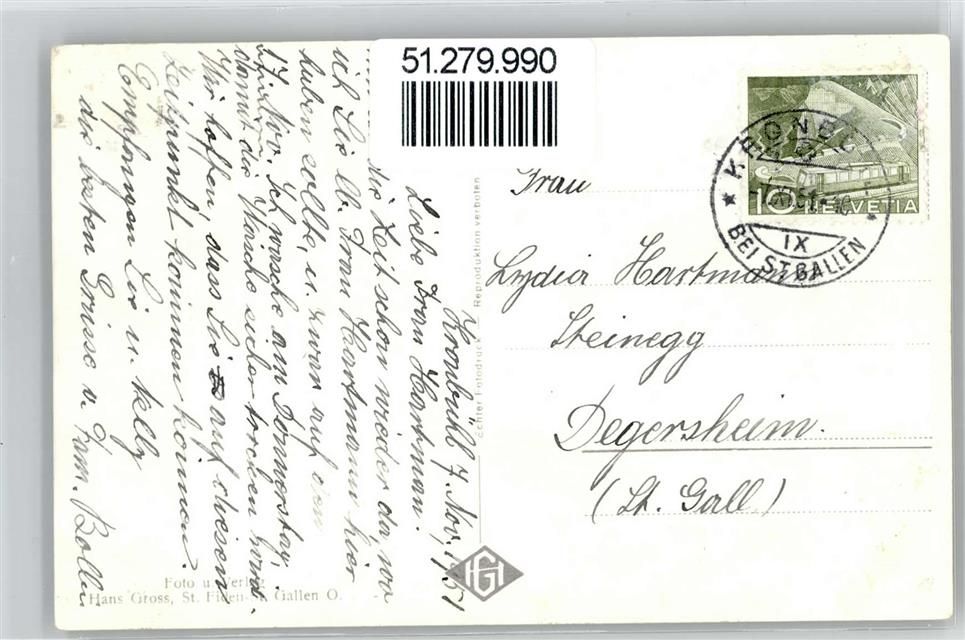 51.279.990
Kronbühl 7. Nov. 1951
Liebe Frau Hartmann.
die Zeit schon wieder da, wo
ich Sie lb. Frau Hartmann hier
haben sollte, u. zwar auf den
17. Nov. Ich wasche am Donnerstag,
damit die Wäsche sicher trocken wird.
Wir hoffen, dass Sie auf diesen
Zeitpunkt kommen können.
Empfangen Sie u. Nelly
die besten Grüsse v. Fam. Bolle
Foto u. Verlag
Hans Gross, St. Fiden-St. Gallen O.
Echter Fotodruck — Reproduktion verboten
HG
10 HELVETIA
KRONBÜHL
7.XI.51
IX
BEI ST. GALLEN
Frau
Lydia Hartmann
Steinegg
Degersheim.
(St. Gall.)